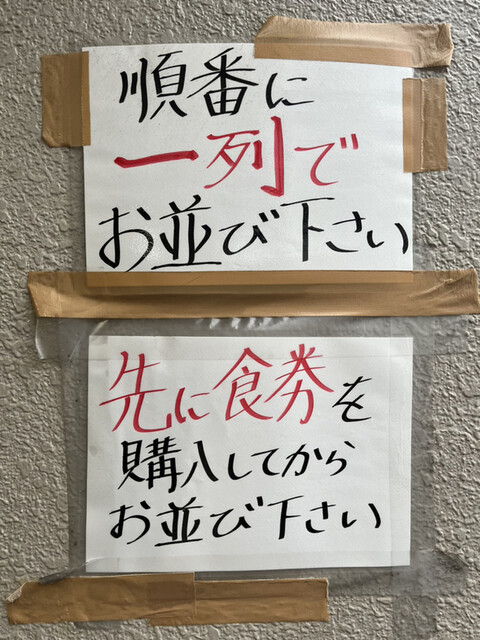 順番に
一列で
お並び下さい
先に食券を
購入してから
お並び下さい